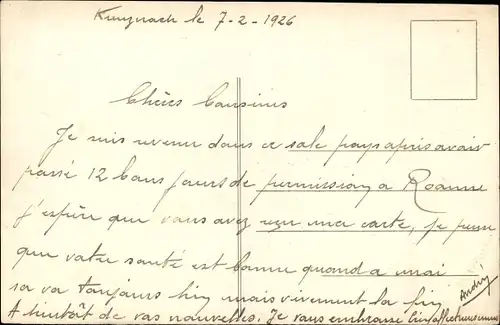 Kreuznach le 7-2-1926
Chères Cousines
Je suis revenu dans ce sale pays après avoir
passé 12 bons jours de permission a Roanne
j'espère que vous avez reçu ma carte, Je pense
que votre santé est bonne quand a moi
sa va toujours bien mais vivement la fin
A bientôt de vos nouvelles. Je vous embrasse bien affectueusement
André